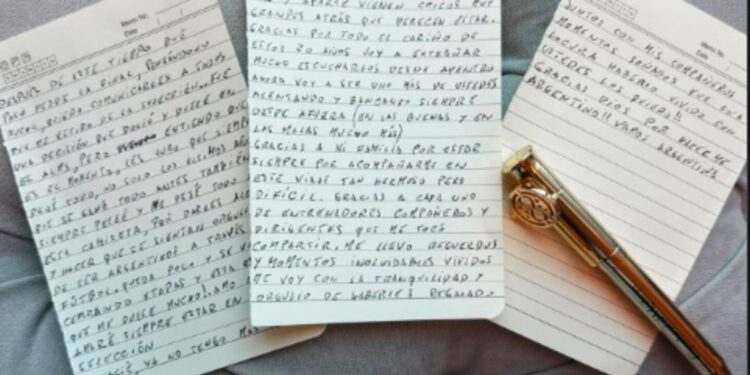 Memo No.
Date
DESPUÉS DE ESTE TIEMPO QUE
PASO DESDE LA FINAL, PENSANDOLO
MUCHO, QUIERO COMUNICARLES A TODOS
QUE ME RETIRO DE LA SELECCIÓN. FUE
UNA DECISIÓN QUE DOLIÓ Y DUELE EN
EL ALMA, PERO ENTIENDO QUE
ES EL MOMENTO, LES JURO QUE SIEMPRE
DEJÉ TODO, NO SOLO LOS ULTIMOS AÑOS
QUE SE GANÓ TODO ANTES TAMBIÉN
SIEMPRE PELEÉ Y ME DEJÉ TODO
ESTA CAMISETA, POR DARLES ALE
Y HACER QUE SE SIENTAN ORGULLO
DE SER ARGENTINOS A TRAVÉS
FÚTBOL. QUEDA POCO Y SE V
CERRANDO ETAPAS Y ESTA ES
QUE ME DUELE MUCHO!
SIEMPRE ESTAR EN
SELECCIÓN
YA NO TENGO MÁS
Y APARTE VIENEN CHICOS MUY
GRANDES ATRÁS QUE MERECEN ESTAR.
GRACIAS POR TODO EL CARIÑO DE
ESTOS 20 AÑOS VOY A EXTRAÑAR
MUCHO ESCUCHARLOS DESDE ADENTRO
AHORA VOY A SER UNO MÁS DE USTEDES
ALENTANDO Y BANCANDO SIEMPRE
DESDE AFUERA (EN LAS BUENAS Y EN
LAS MALAS MUCHO MÁS)
GRACIAS A MI FAMILIA POR ESTAR
SIEMPRE POR ACOMPAÑARME EN
ESTE VIAJE TAN HERMOSO PERO
DIFÍCIL. GRACIAS A CADA UNO
DE ENTRENADORES COMPAÑEROS Y
DIRIGENTES QUE ME TOCÓ
COMPARTIR. ME LLEVO RECUERDOS
Y MOMENTOS INOLVIDABLES VIVIDOS
ME VOY CON LA TRANQUILIDAD Y
ORGULLO DE HABERLES REGALADO,
Memo No.
Date
JUNTOS CON MIS COMPAÑEROS
MOMENTOS SOÑADOS QUE
LOCURA HABERLO VIVIDO CON
USTEDES LOS QUIERO!!
GRACIAS DIOS POR HACERME
ARGENTINO!! VAMOS ARGENTINA